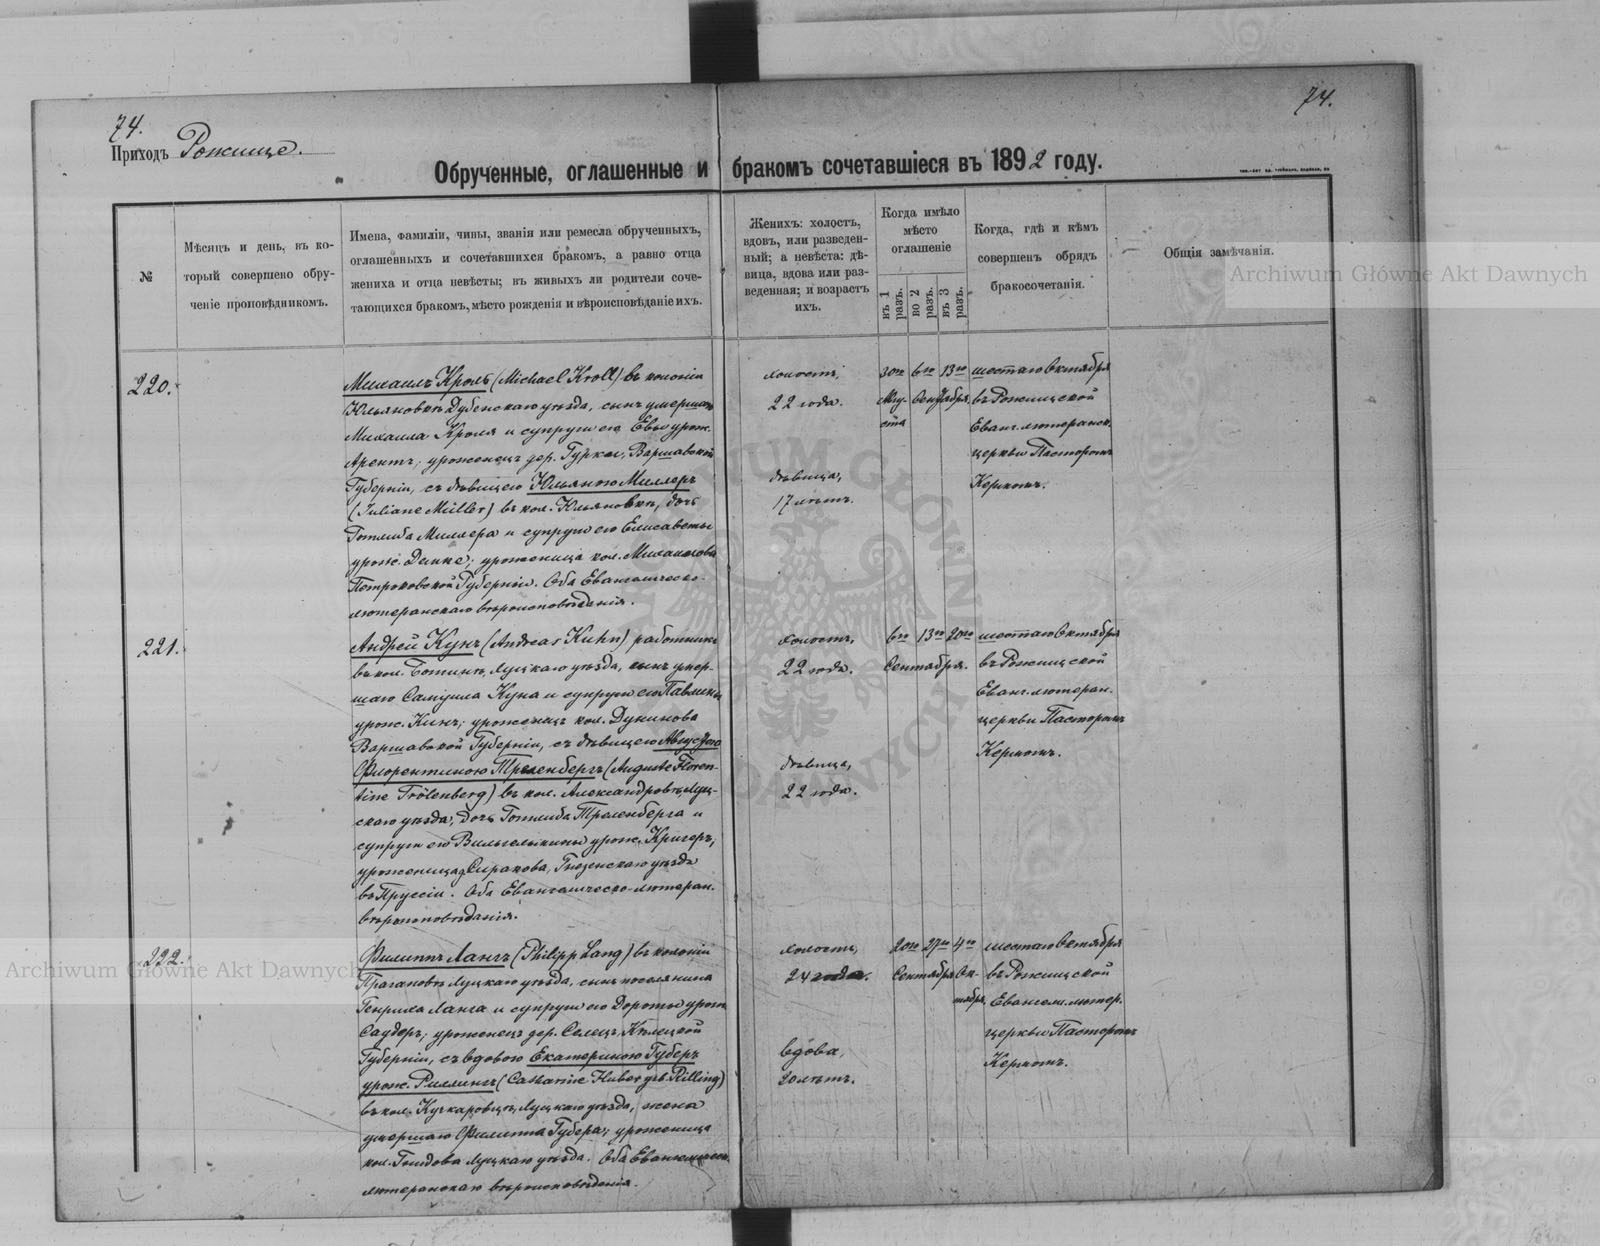 74.
74.
Приходъ Рожище.
Обрученные, оглашенные и бракомъ сочетавшіеся въ 1892 году.
№
Мѣсяцъ и день, въ ко-
торый совершено обру-
ченіе проповѣдникомъ.
Имена, фамиліи, чины, званія или ремесла обрученныхъ,
оглашенныхъ и сочетавшихся бракомъ, а равно отца
жениха и отца невѣсты; въ живыхъ ли родители соче-
тающихся бракомъ, мѣсто рожденія и вѣроисповѣданіе ихъ.
Женихъ: холостъ,
вдовъ, или разведен-
ный; а невѣста: дѣ-
вица, вдова или раз-
веденная; и возрастъ
ихъ.
Когда имѣло
мѣсто
оглашеніе
въ 1 разъ.
во 2 разъ.
въ 3 разъ.
Когда, гдѣ и кѣмъ
совершенъ обрядъ
бракосочетанія.
Общія замѣчанія.
Archiwum Główne Akt Dawnych
220.
Михаилъ Кроль (Michael Kroll) въ колоніи
Юльяновкѣ Дубенскаго уѣзда, сынъ умершаго
Михаила Кроля и супруги его Евы урож.
Арентъ; уроженецъ дер. Гурки, Варшавской
Губерніи, съ дѣвицею Юльяною Миллеръ
(Juliane Müller) въ кол. Юльяновкѣ, дочь
Готлиба Миллера и супруги его Елисаветы
урож. Денке; уроженица кол.
Петроковской Губерніи. Оба Евангелическо-
лютеранскаго вѣроисповѣданія.
холостъ,
22 года.
дѣвица,
17 лѣтъ.
30го 6го 13го
Авгу- Сентября.
ста
шестаго Октября
въ Рожищской
Еванг. лютеранск.
церкви Пасторомъ
Кермомъ.
221.
Андрей Кунъ (Andreas Kuhn) работникъ
въ кол. Луцкаго уѣзда, сынъ умер-
шаго Самуила Куна и супруги его Павлины
урож. Кинъ; уроженецъ кол. Дунинова
Варшавской Губерніи, съ дѣвицею Августою
Флорентиною Треленбергъ (Auguste Floren-
tine Trölenberg) въ кол. Александровкѣ Луц-
скаго уѣзда, дочь Готлиба Треленберга и
супруги его Вильгельмины урож. Кригеръ,
уроженица Сиракова, Гнезенскаго уѣзда
въ Пруссіи. Оба Евангелическо-лютеран.
вѣроисповѣданія.
холостъ,
22 года.
дѣвица,
22 года.
6го 13го 20го
Сентября.
шестаго Октября
въ Рожищской
Еванг. лютеран.
церкви Пасторомъ
Кермомъ.
222.
Филиппъ Лангъ (Philipp Lang) въ колоніи
Луцкаго уѣзда, сынъ поселянина
Генриха Ланга и супруги его Доротеи урож.
Саудеръ; уроженецъ дер. Селецъ, Кѣлецкой
Губерніи, съ вдовою Екатериною Губеръ
урож. Риллингъ (Catharine Huber geb. Rilling)
въ кол. Кучкаровцѣ, Луцкаго уѣзда, жена
умершаго Филиппа Губера; уроженица
кол. Луцкаго уѣзда. Оба Евангелическо-
лютеранскаго вѣроисповѣданія.
холостъ,
24 года.
вдова,
20 лѣтъ.
20го 27го 4го
Сентября Ок-
тября.
шестаго Октября
въ Рожищской
Евангел. лютер.
церкви Пасторомъ
Кермомъ.
Archiwum Główne Akt Dawnych